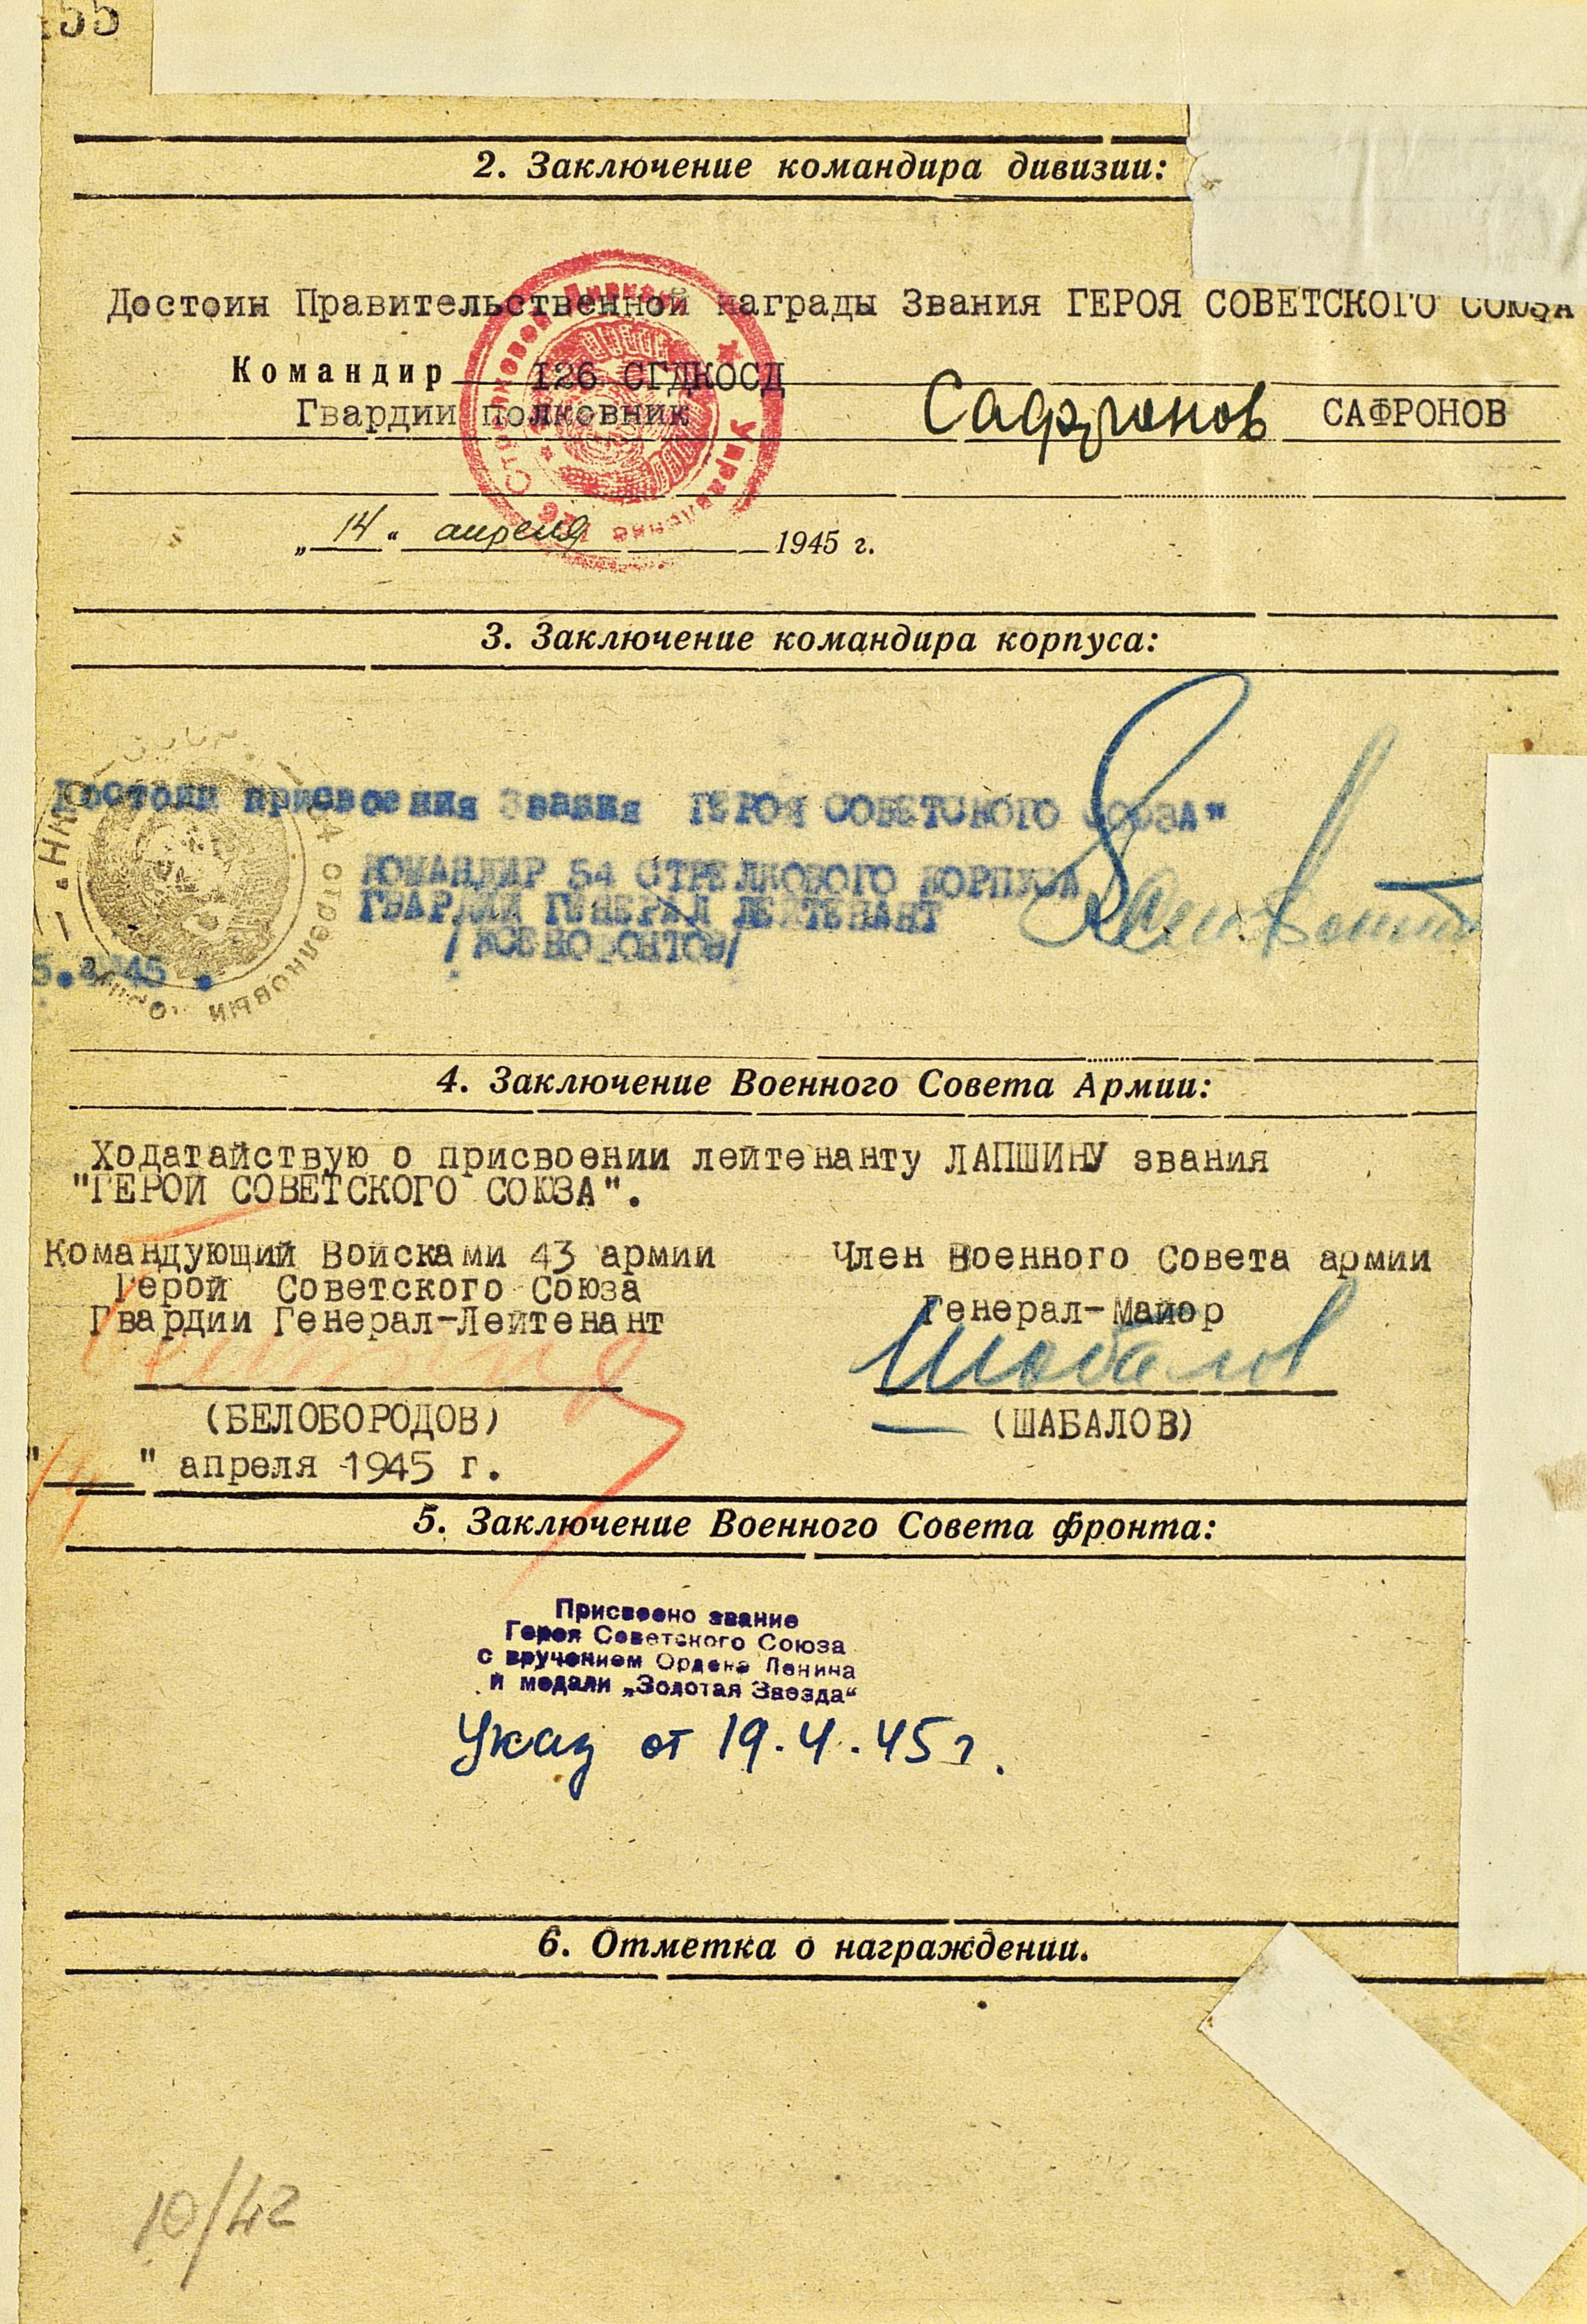 55
2. Заключение командира дивизии:
Достоин Правительственной награды Звания ГЕРОЯ СОВЕТСКОГО СОЮЗА
Командир 126 СГДКОСД
Гвардии полковник Сафронов САФРОНОВ
„14“ апреля 1945 г.
3. Заключение командира корпуса:
Достоин присвоения Звания ГЕРОЯ СОВЕТСКОГО СОЮЗА"
КОМАНДИР 54 СТРЕЛКОВОГО КОРПУСА
ГВАРДИИ ГЕНЕРАЛ ЛЕЙТЕНАНТ
/КСЕНОФОНТОВ/
4. Заключение Военного Совета Армии:
Ходатайствую о присвоении лейтенанту ЛАПШИНУ звания
"ГЕРОЙ СОВЕТСКОГО СОЮЗА".
Командующий Войсками 43 армии Член Военного Совета армии
Герой Советского Союза
Гвардии Генерал-Лейтенант Генерал-Майор
Шабалов
(БЕЛОБОРОДОВ) (ШАБАЛОВ)
" " апреля 1945 г.
5. Заключение Военного Совета фронта:
Присвоено звание
Героя Советского Союза
с вручением Ордена Ленина
и медали „Золотая Звезда“
Указ от 19.4.45 г.
6. Отметка о награждении.
10/42